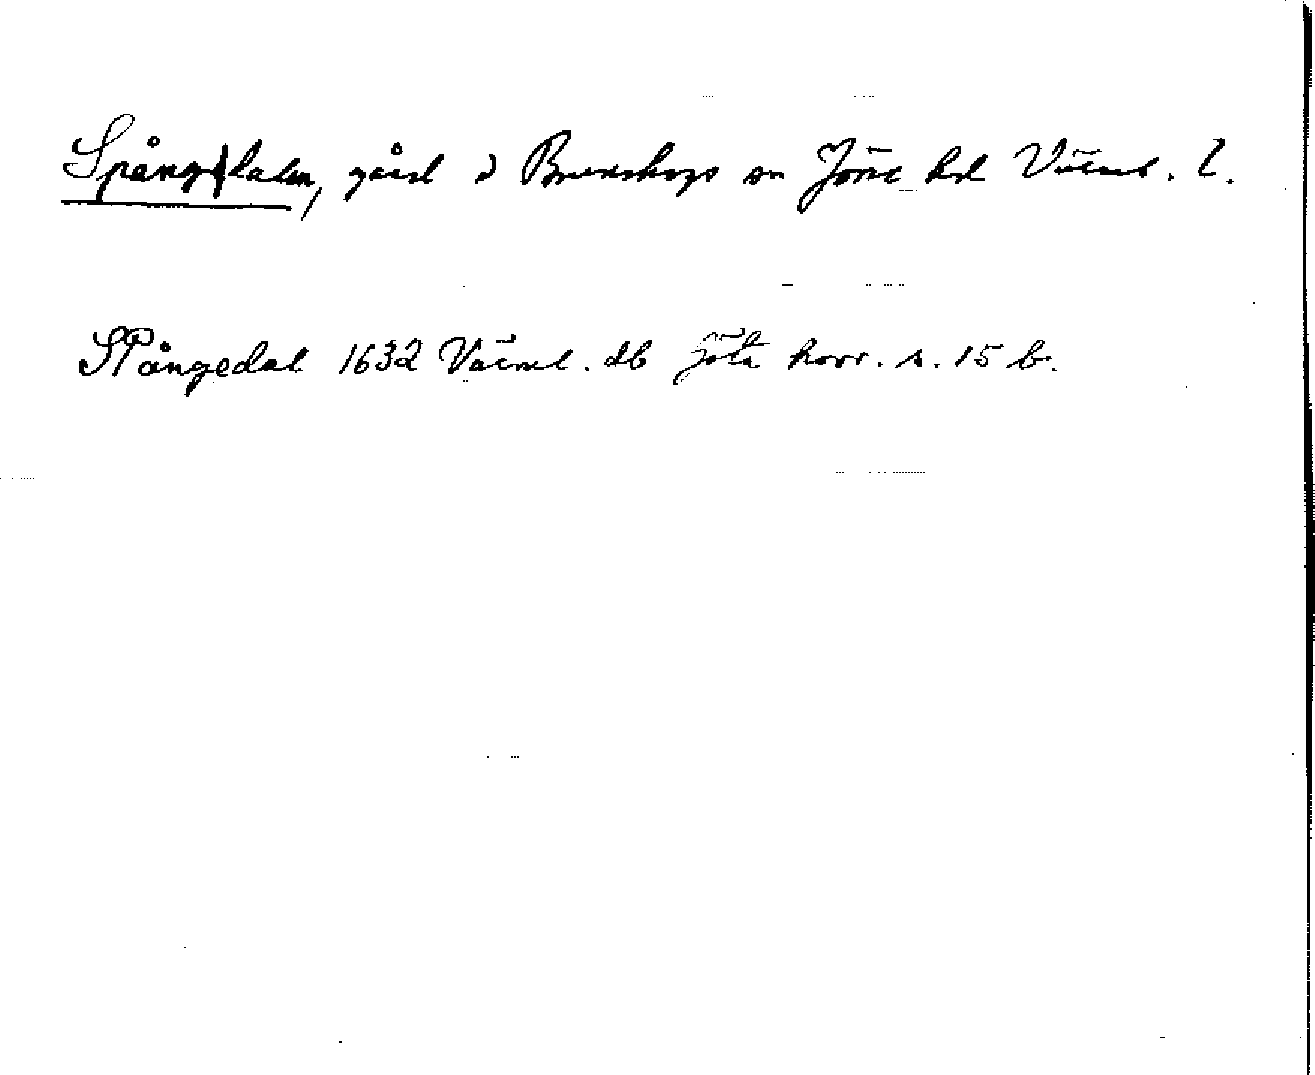 Spångdalen, gård i Brunskogs sn Jösse hd Värml. l.
Spångedal 1632 Värml. db Göta hovr. s. 15 b.